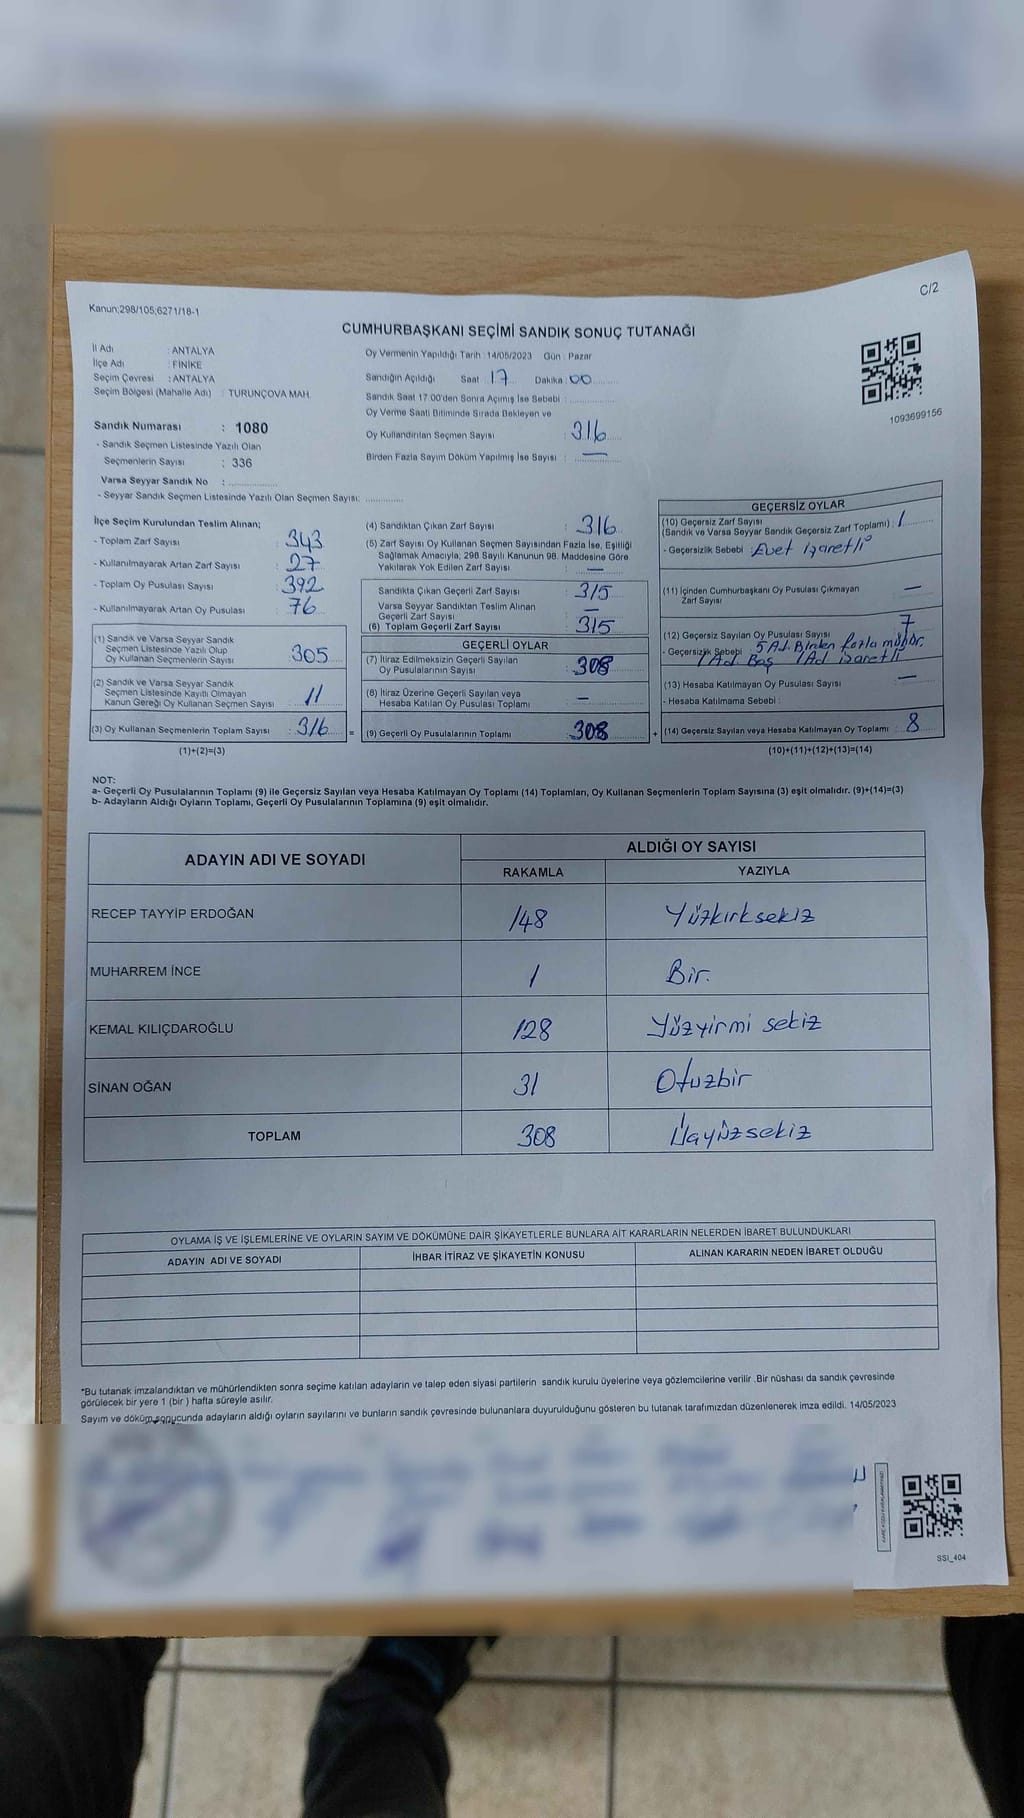 C/2
Kanun;298/105;6271/18-1
CUMHURBAŞKANI SEÇİMİ SANDIK SONUÇ TUTANAĞI
İl Adı : ANTALYA
İlçe Adı : FİNİKE
Seçim Çevresi : ANTALYA
Seçim Bölgesi (Mahalle Adı) : TURUNÇOVA MAH.
Sandık Numarası : 1080
- Sandık Seçmen Listesinde Yazılı Olan
Seçmenlerin Sayısı : 336
Varsa Seyyar Sandık No :
- Seyyar Sandık Seçmen Listesinde Yazılı Olan Seçmen Sayısı:
Oy Vermenin Yapıldığı Tarih :14/05/2023 Gün : Pazar
Sandığın Açıldığı Saat : 17 Dakika : 00
Sandık Saat 17.00'den Sonra Açımış İse Sebebi :
Oy Verme Saati Bitiminde Sırada Bekleyen ve
Oy Kullandırılan Seçmen Sayısı : 316
Birden Fazla Sayım Döküm Yapılmış İse Sayısı : —
1093699156
İlçe Seçim Kurulundan Teslim Alınan;
- Toplam Zarf Sayısı : 343
- Kullanılmayarak Artan Zarf Sayısı : 27
- Toplam Oy Pusulası Sayısı : 392
- Kullanılmayarak Artan Oy Pusulası : 76
(1) Sandık ve Varsa Seyyar Sandık
Seçmen Listesinde Yazılı Olup
Oy Kullanan Seçmenlerin Sayısı : 305
(2) Sandık ve Varsa Seyyar Sandık
Seçmen Listesinde Kayıtlı Olmayan
Kanun Gereği Oy Kullanan Seçmen Sayısı : 11
(3) Oy Kullanan Seçmenlerin Toplam Sayısı : 316
(1)+(2)=(3)
(4) Sandıktan Çıkan Zarf Sayısı : 316
(5) Zarf Sayısı Oy Kullanan Seçmen Sayısından Fazla İse, Eşitliği
Sağlamak Amacıyla; 298 Sayılı Kanunun 98. Maddesine Göre
Yakılarak Yok Edilen Zarf Sayısı : —
Sandıkta Çıkan Geçerli Zarf Sayısı : 315
Varsa Seyyar Sandıktan Teslim Alınan
Geçerli Zarf Sayısı : —
(6) Toplam Geçerli Zarf Sayısı : 315
GEÇERLİ OYLAR
(7) İtiraz Edilmeksizin Geçerli Sayılan
Oy Pusulalarının Sayısı : 308
(8) İtiraz Üzerine Geçerli Sayılan veya
Hesaba Katılan Oy Pusulası Toplamı : —
= (9) Geçerli Oy Pusulalarının Toplamı : 308 +
GEÇERSİZ OYLAR
(10) Geçersiz Zarf Sayısı
(Sandık ve Varsa Seyyar Sandık Geçersiz Zarf Toplamı) : 1
- Geçersizlik Sebebi : Evet işaretli
(11) İçinden Cumhurbaşkanı Oy Pusulası Çıkmayan
Zarf Sayısı : —
(12) Geçersiz Sayılan Oy Pusulası Sayısı : 7
- Geçersizlik Sebebi : 5 Ad. Birden fazla mühür.
1 Ad Boş 1 Ad işaretli
(13) Hesaba Katılmayan Oy Pusulası Sayısı : —
- Hesaba Katılmama Sebebi :
(14) Geçersiz Sayılan veya Hesaba Katılmayan Oy Toplamı : 8
(10)+(11)+(12)+(13)=(14)
NOT:
a- Geçerli Oy Pusulalarının Toplamı (9) ile Geçersiz Sayılan veya Hesaba Katılmayan Oy Toplamı (14) Toplamları, Oy Kullanan Seçmenlerin Toplam Sayısına (3) eşit olmalıdır. (9)+(14)=(3)
b- Adayların Aldığı Oyların Toplamı, Geçerli Oy Pusulalarının Toplamına (9) eşit olmalıdır.
ADAYIN ADI VE SOYADI ALDIĞI OY SAYISI
RAKAMLA YAZIYLA
RECEP TAYYİP ERDOĞAN 148 Yüzkırksekiz
MUHARREM İNCE 1 Bir.
KEMAL KILIÇDAROĞLU 128 Yüzyirmi sekiz
SİNAN OĞAN 31 Otuzbir
TOPLAM 308 Üçyüzsekiz
OYLAMA İŞ VE İŞLEMLERİNE VE OYLARIN SAYIM VE DÖKÜMÜNE DAİR ŞİKAYETLERLE BUNLARA AİT KARARLARIN NELERDEN İBARET BULUNDUKLARI
ADAYIN ADI VE SOYADI İHBAR İTİRAZ VE ŞİKAYETİN KONUSU ALINAN KARARIN NEDEN İBARET OLDUĞU
*Bu tutanak imzalandıktan ve mühürlendikten sonra seçime katılan adayların ve talep eden siyasi partilerin sandık kurulu üyelerine veya gözlemcilerine verilir .Bir nüshası da sandık çevresinde
görülecek bir yere 1 (bir ) hafta süreyle asılır.
Sayım ve döküm sonucunda adayların aldığı oyların sayılarını ve bunların sandık çevresinde bulunanlara duyurulduğunu gösteren bu tutanak tarafımızdan düzenlenerek imza edildi. 14/05/2023
SSİ_404